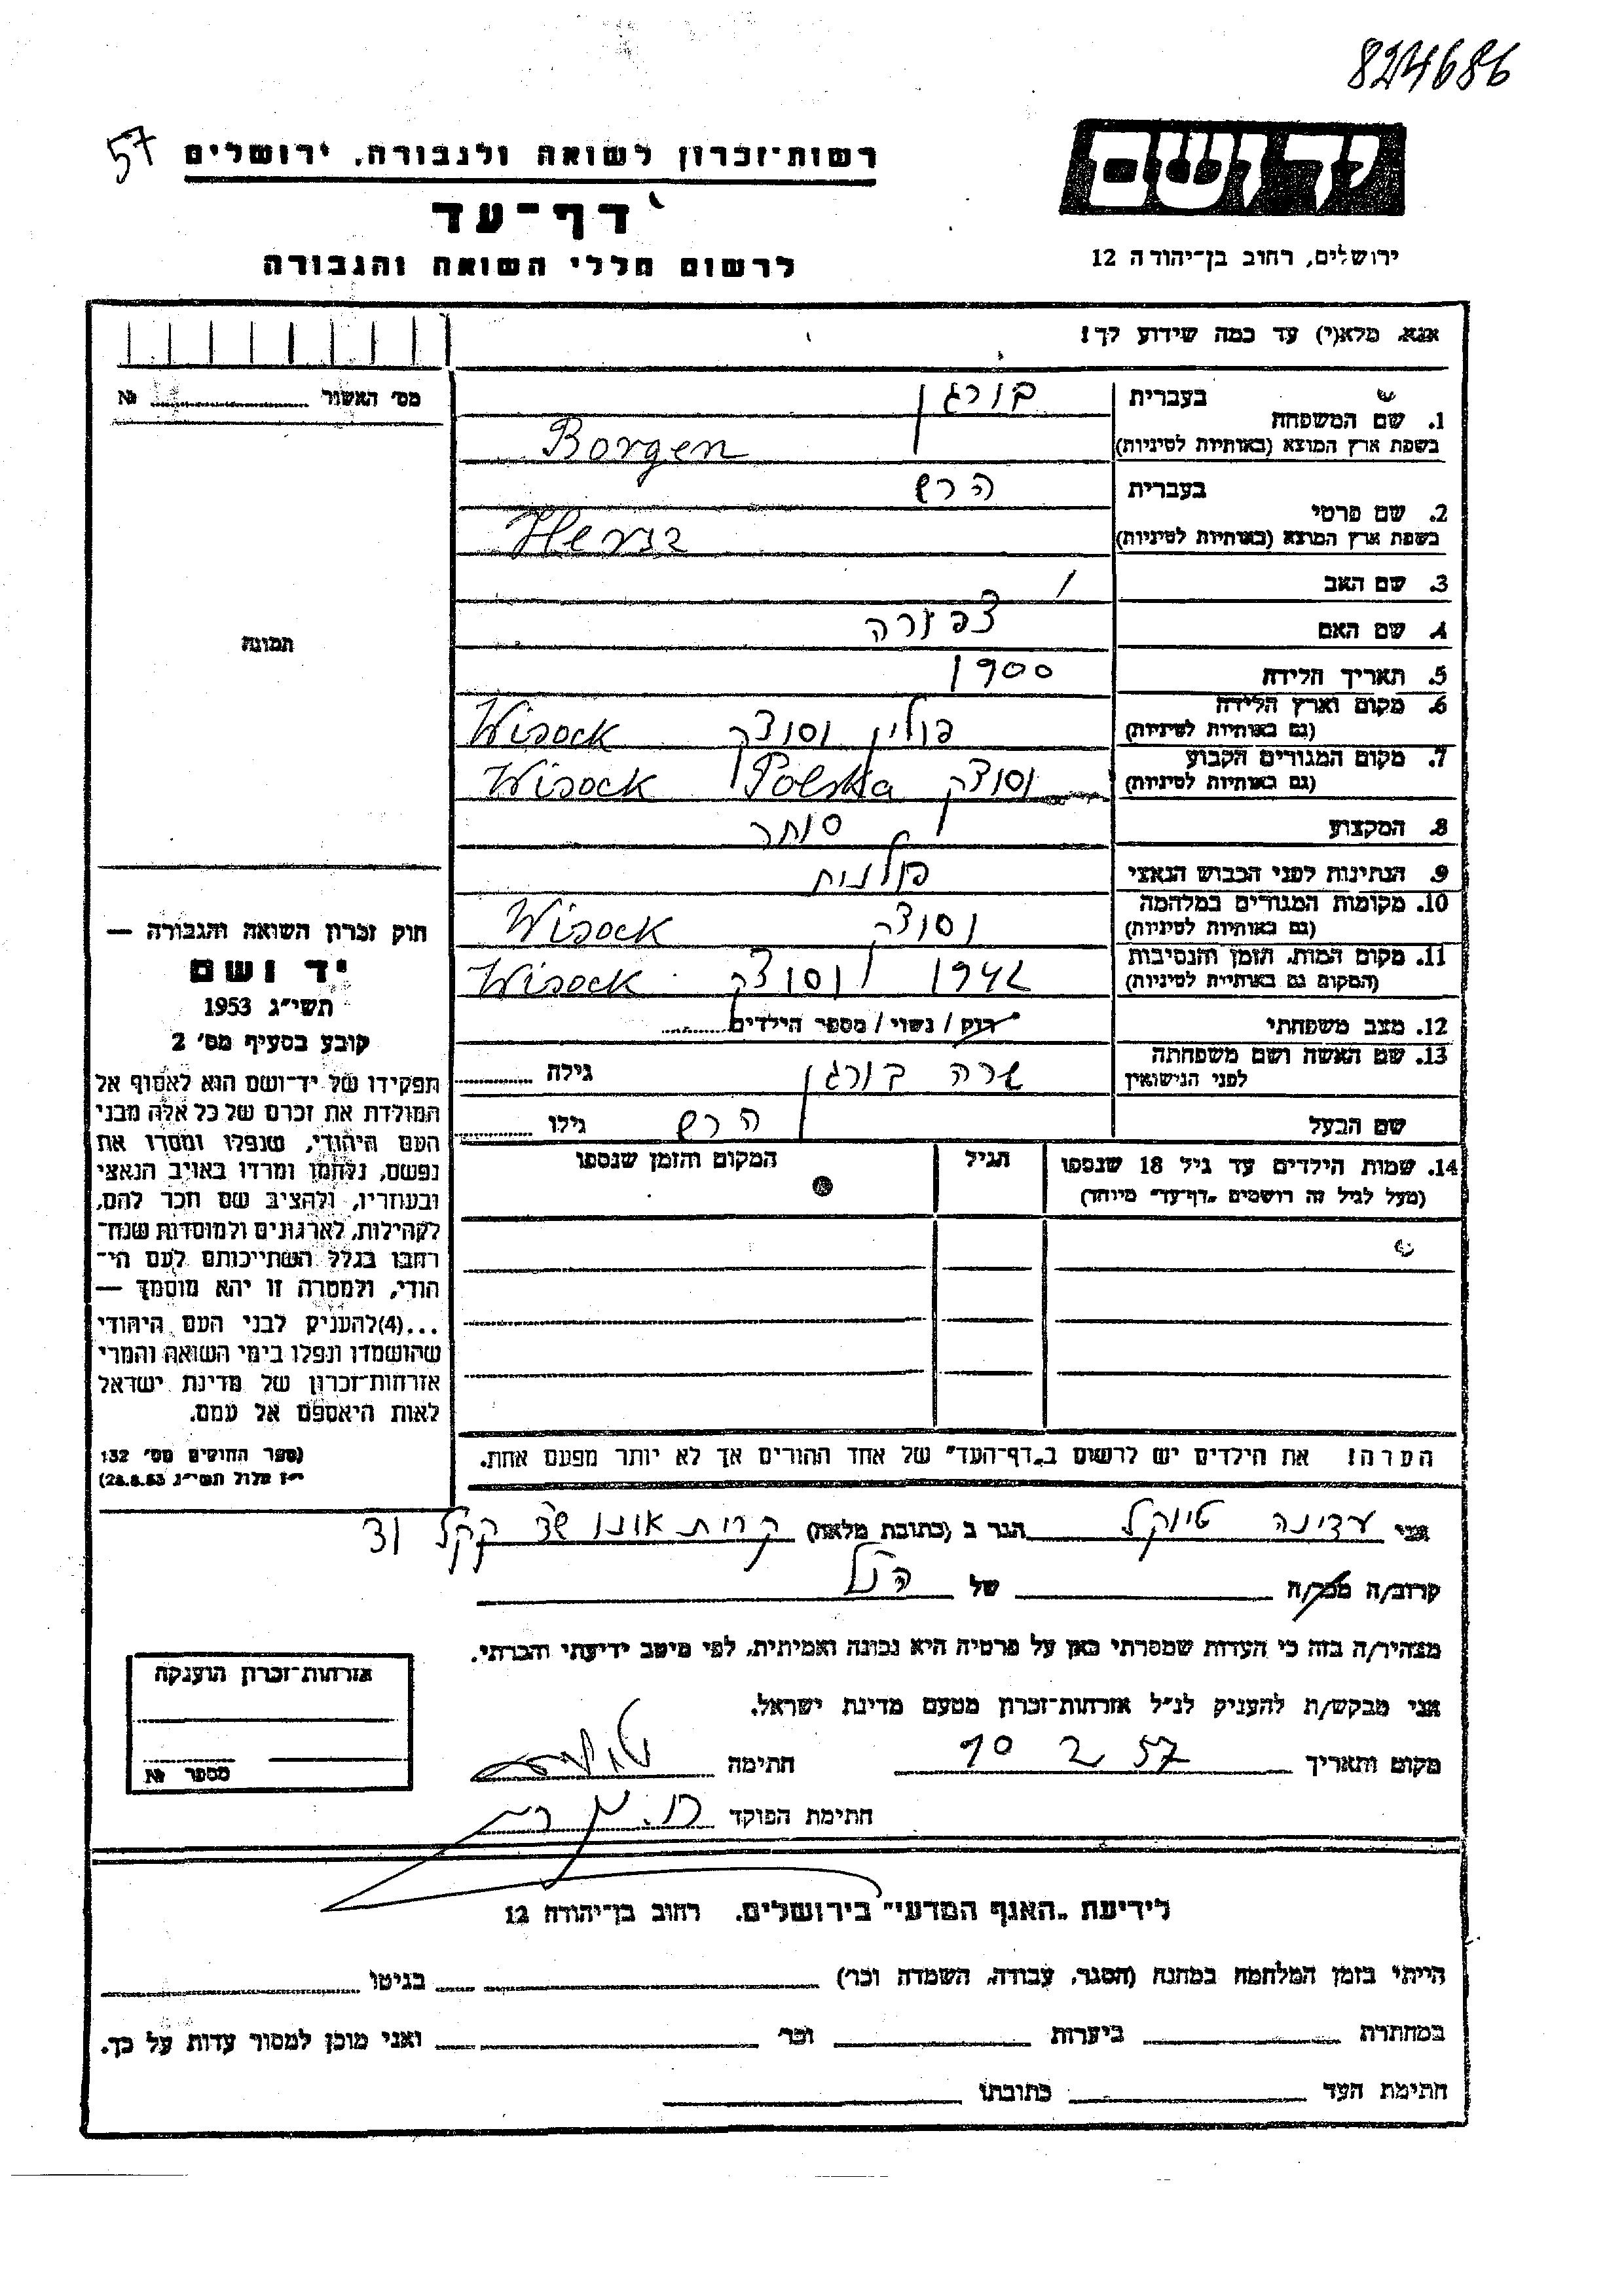 824686
57
רשות־זכרון לשואה ולגבורה, ירושלים
יד ושם
דף־עד
ירושלים, רחוב בן־יהודה 12
לרשום חללי השואה והגבורה
אנא, מלא(י) עד כמה שידוע לך!
מס׳ האשור № 
1. שם המשפחה בעברית בורגן
בשפת ארץ המוצא (באותיות לטיניות) Borgen
2. שם פרטי בעברית הרש
בשפת ארץ המוצא (באותיות לטיניות) Hersz
3. שם האב /
4. שם האם צפורה
תמונה
5. תאריך הלידה 1900
6. מקום וארץ הלידה פולין וסוצק Wisock
(גם באותיות לטיניות)
7. מקום המגורים הקבוע וסוצק Polska Wisock
(גם באותיות לטיניות)
8. המקצוע סוחר
9. הנתינות לפני הכבוש הנאצי פולנית
10. מקומות המגורים במלחמה וסוצק Wisock
(גם באותיות לטיניות)
11. מקום המות, הזמן והנסיבות 1942 וסוצק Wisock
(המקום גם באותיות לטיניות)
12. מצב משפחתי רווק / נשוי / מספר הילדים
13. שם האשה ושם משפחתה שרה בורגן גילה
לפני הנישואין
שם הבעל הרש גילו
14. שמות הילדים עד גיל 18 שנספו הגיל המקום והזמן שנספו
(מעל לגיל זה רושמים „דף־עד״ מיוחד)
חוק זכרון השואה והגבורה —
יד ושם
תשי״ג 1953
קובע בסעיף מס׳ 2
תפקידו של יד־ושם הוא לאסוף אל
המולדת את זכרם של כל אלה מבני
העם היהודי, שנפלו ומסרו את
נפשם, נלחמו ומרדו באויב הנאצי
ובעוזריו, ולהציב שם וזכר להם,
לקהילות, לארגונים ולמוסדות שנח־
רבו בגלל השתייכותם לעם הי־
הודי, ולמטרה זו יהא מוסמך —
...(4)להעניק לבני העם היהודי
שהושמדו ונפלו בימי השואה והמרי
אזרחות־זכרון של מדינת ישראל
לאות היאספם אל עמם.
(ספר החוקים מס׳ 132
י״ז אלול תשי״ג 28.8.53)
הערה! את הילדים יש לרשום ב„דף־העד״ של אחד ההורים אך לא יותר מפעם אחת.
אני עדינה הגר ב (כתובת מלאה) קרית אונו
קרוב/ה מכר/ה של הנ״ל
מצהיר/ה בזה כי העדות שמסרתי כאן על פרטיה היא נכונה ואמיתית, לפי מיטב ידיעתי והכרתי.
אני מבקש/ת להעניק לנ״ל אזרחות־זכרון מטעם מדינת ישראל.
מקום ותאריך 10 2 57 חתימה
חתימת הפוקד
אזרחות־זכרון הוענקה
מספר №
לידיעת „האגף המדעי״ בירושלים, רחוב בן־יהודה 12
הייתי בזמן המלחמה במחנה (הסגר, עבודה, השמדה וכו׳) בגיטו
במחתרת ביערות וכו׳ ואני מוכן למסור עדות על כך.
חתימת העד כתובתו